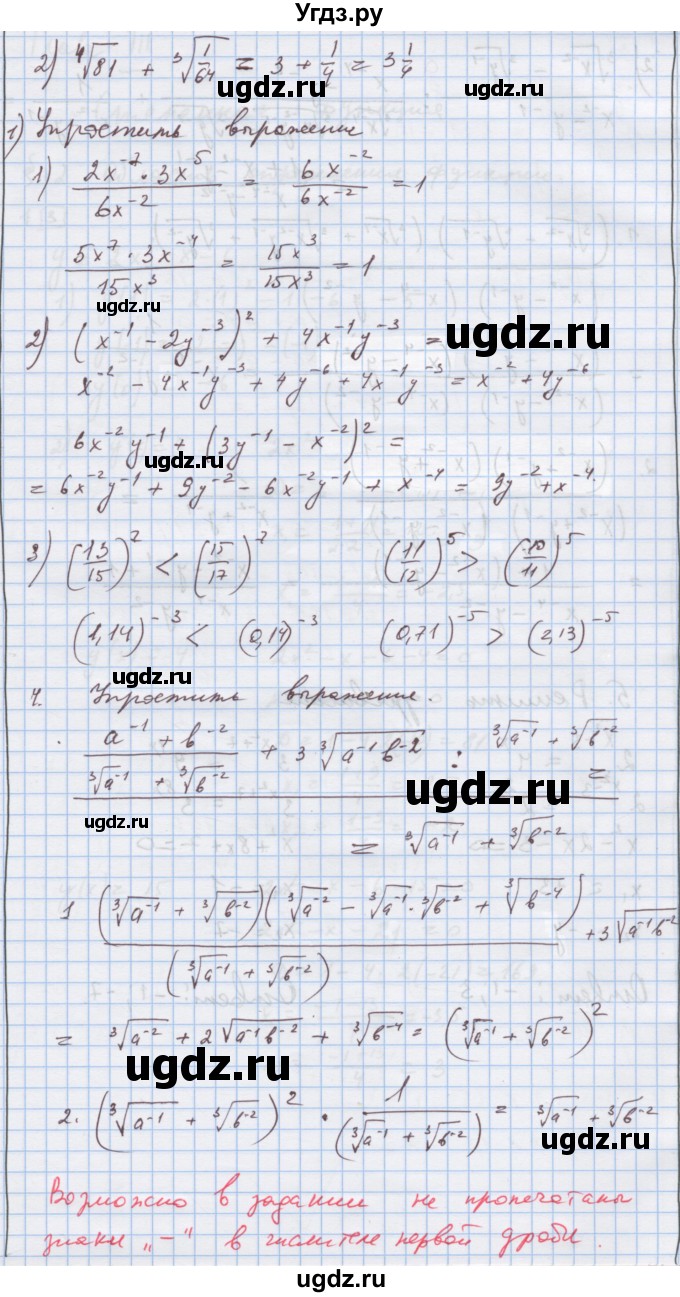 Угдз.ру
2) ⁴√81 + ³√(1/64) = 3 + 1/4 = 3 1/4
ugdz.ru ugdz.ru
1) Упростить выражение
1) (2x⁻⁷ · 3x⁵)/(6x⁻²) = (6x⁻²)/(6x⁻²) = 1
(5x⁷ · 3x⁻⁴)/(15x³) = (15x³)/(15x³) = 1
ugdz.ru
2) (x⁻¹ - 2y⁻³)² + 4x⁻¹y⁻³ =
ugdz.ru
x⁻² - 4x⁻¹y⁻³ + 4y⁻⁶ + 4x⁻¹y⁻³ = x⁻² + 4y⁻⁶
6x⁻²y⁻¹ + (3y⁻¹ - x⁻²)² =
ugdz.ru
= 6x⁻²y⁻¹ + 9y⁻² - 6x⁻²y⁻¹ + x⁻⁴ = 9y⁻² + x⁻⁴.
3) (13/15)² < (15/17)² (11/12)⁵ > (10/11)⁵
(1,14)⁻³ < (0,14)⁻³ (0,71)⁻⁵ > (2,13)⁻⁵
ugdz.ru
4. Упростить выражение.
(a⁻¹ + b⁻²)/(³√a⁻¹ + ³√b⁻²) + 3 ³√(a⁻¹b⁻²) : ³√a⁻¹ + ³√b⁻² =
ugdz.ru
ugdz.ru
= ³√a⁻¹ + ³√b⁻²
1 (³√a⁻¹ + ³√b⁻²)(³√a⁻² - ³√a⁻¹ · ³√b⁻² + ³√b⁻⁴)/(³√a⁻¹ + ³√b⁻²) + 3√(a⁻¹b⁻²)
= ³√a⁻² + 2√(a⁻¹b⁻²) + ³√b⁻⁴ = (³√a⁻¹ + ³√b⁻²)²
ugdz.ru
2. (³√a⁻¹ + ³√b⁻²)² · 1/(³√a⁻¹ + ³√b⁻²) = ³√a⁻¹ + ³√b⁻²
ugdz.ru
Возможно в задании не пропечатаны
знаки „-" в числителе первой дроби.
ugdz.ru